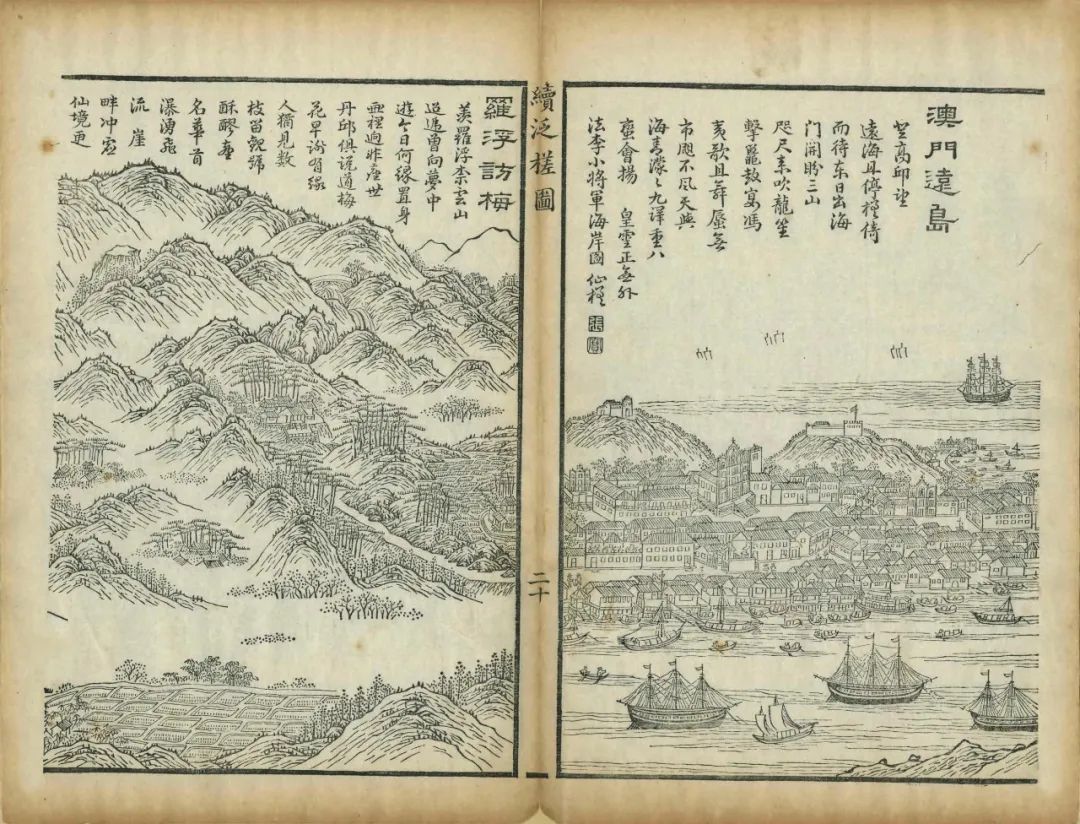 澳門遠島
登高邱望
遠海且停橈倚
而待东日出海
門開盼三山
咫尺未吹龍笙
擊鼉鼓宴馮
夷歌且舞蜃無
市颶不風天與
海青濛々九洋重八
蠻會揚 皇靈正無外
法李小將軍海岸圖 仙槎
張寶
續泛槎圖
二十
羅浮訪梅
羨羅浮柰雲山
迢遞曾向夢中
遊今日何緣置身
壺裡迥非塵世
丹邱俱説道梅
花早謝有緣
人獨見數
枝留觀號
酥醪臺
名華首
瀑湧飛
流崖
畔冲虛
仙境更